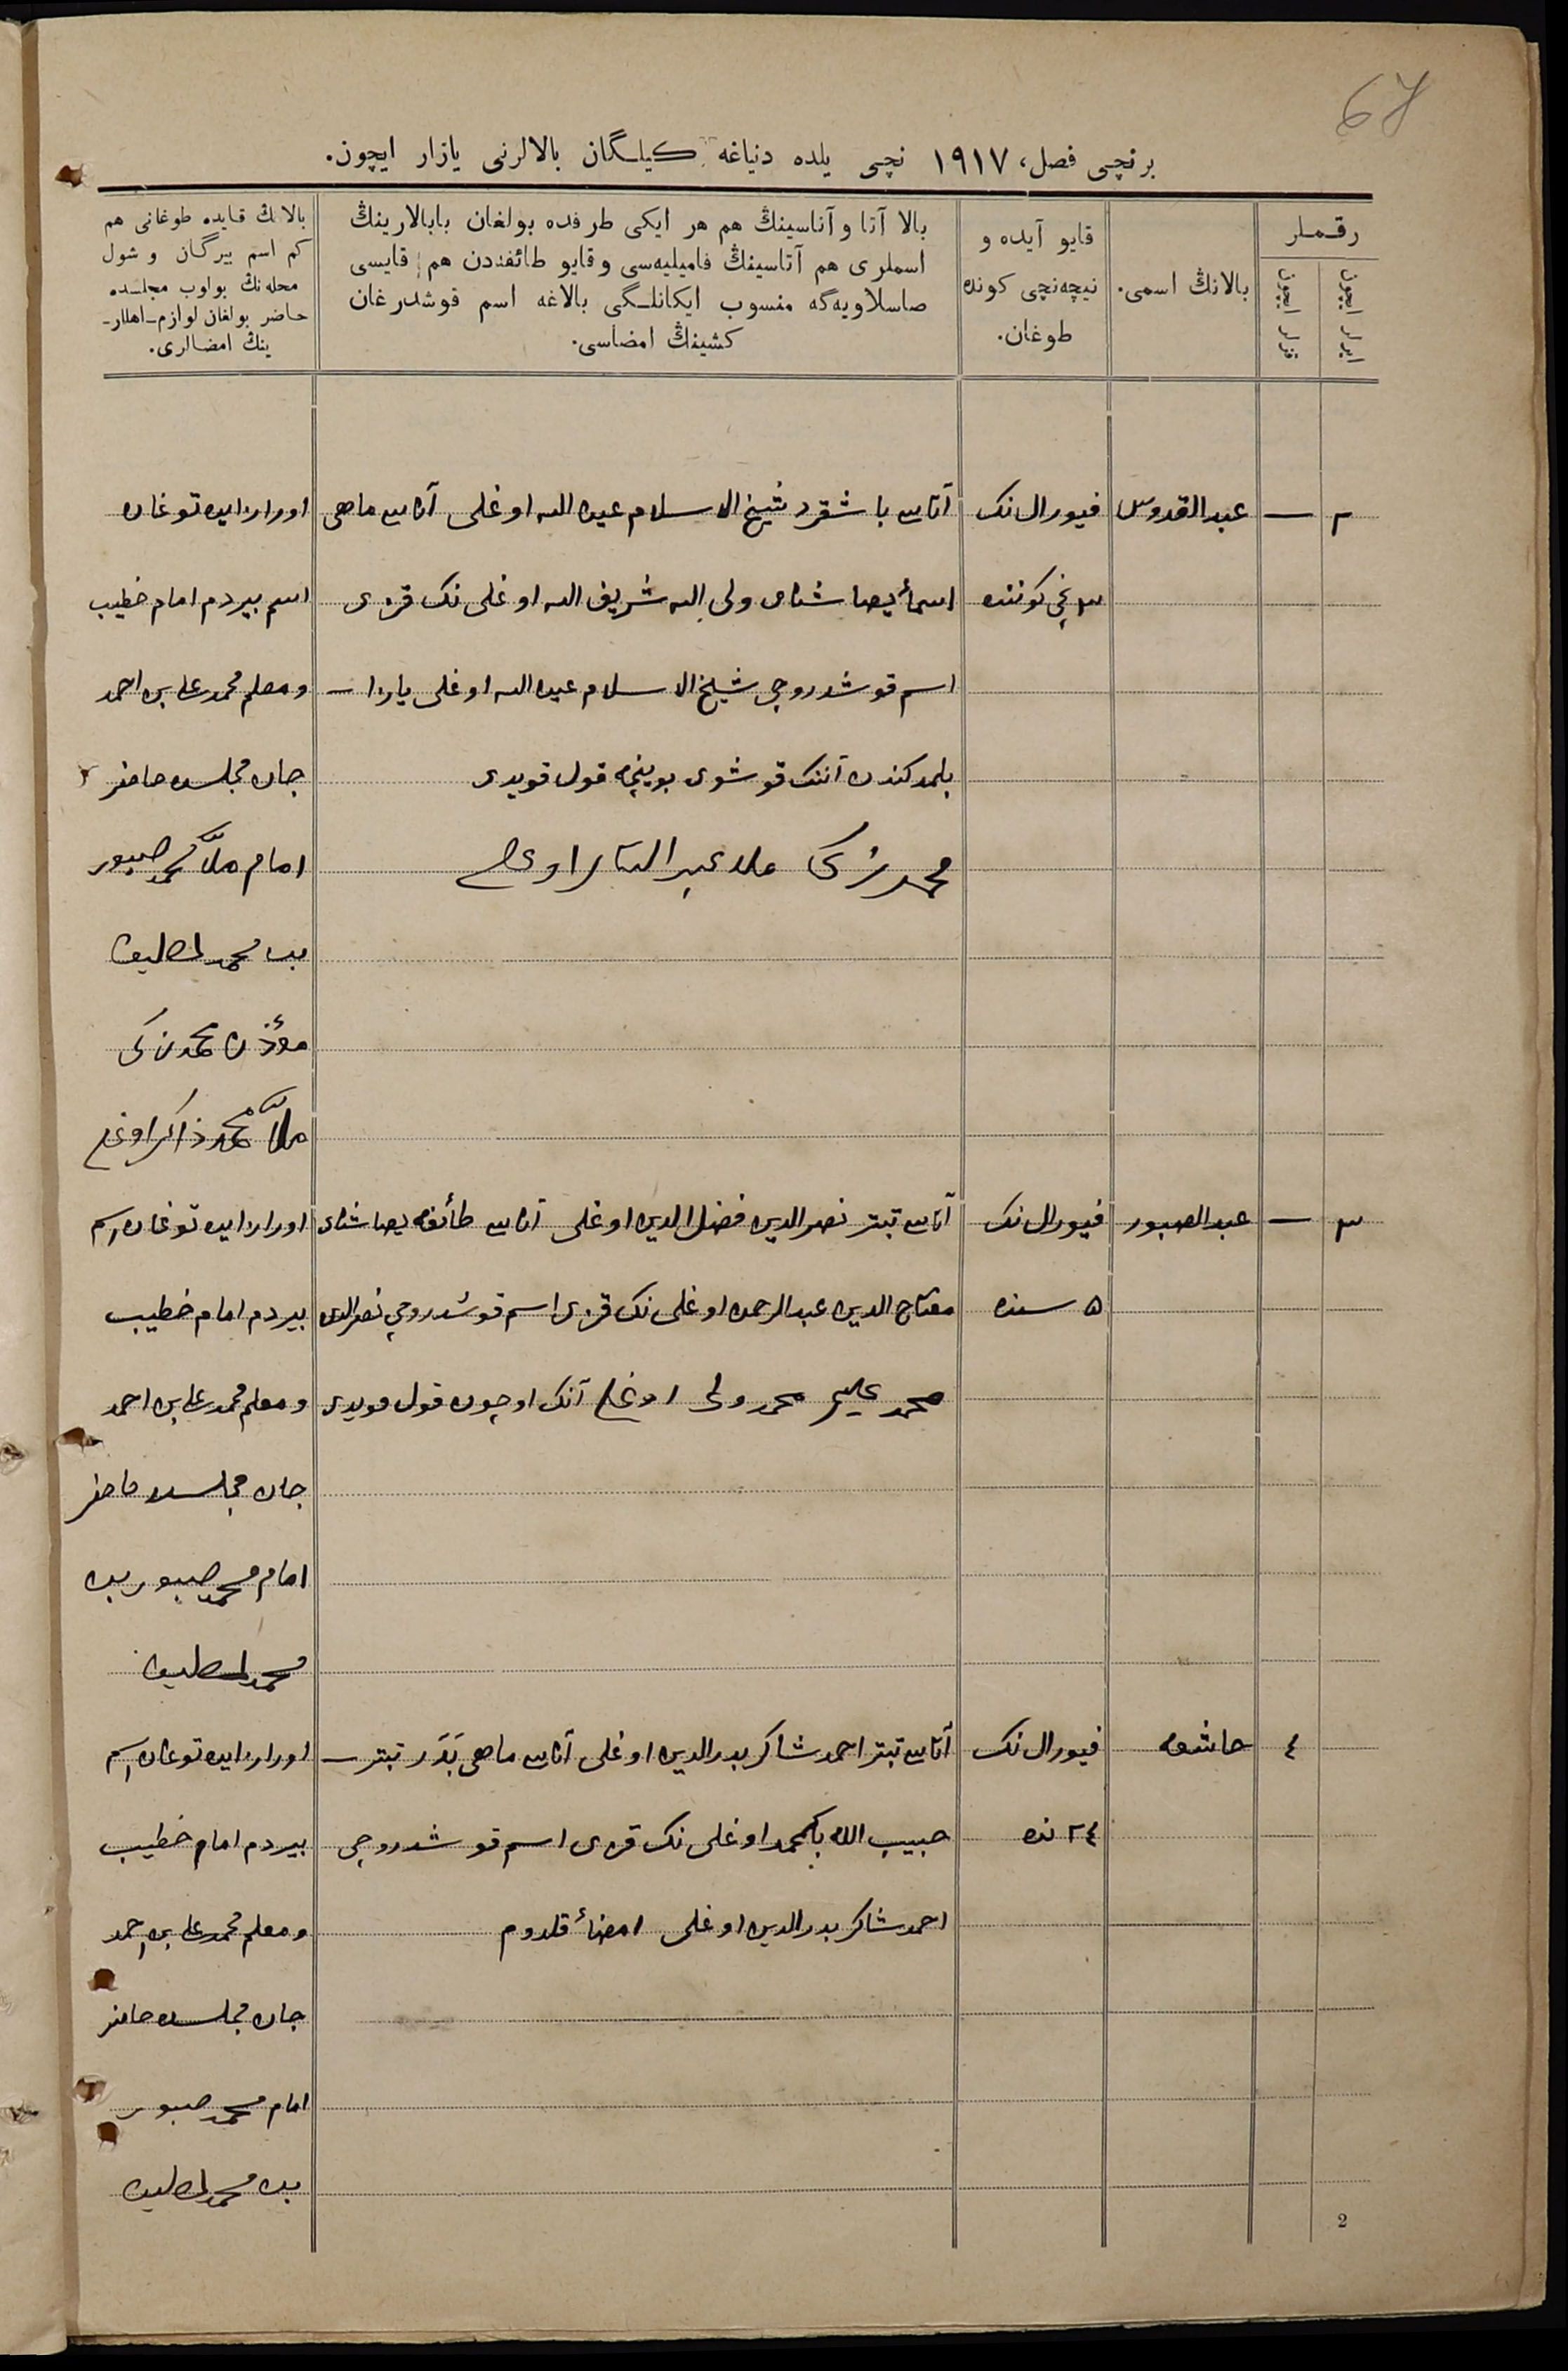 67
برنچی فصل، ١٩١٧ نچی یلده دنیاغه کیلگان بالالرنی یازار ایچون.
رقملر
ایرلر ایچون
قزلر ایچون
بالانڭ اسمی.
قایو آیده و
نیچه‌نچی کونده
طوغان.
بالا آتا و آناسینڭ هم هر ایکی طرفده بولغان بابالارینڭ
اسملری هم آتاسینڭ فامیلیه‌سی و قایو طائفه‌دن هم قایسی
صاسلاویه‌گه منسوب ایکانلگی بالاغه اسم قوشدرغان
کشینڭ امضاسی.
بالانڭ قایده طوغانی هم
کم اسم بیرگان و شول
محله‌نڭ بولوب مجلسده
حاضر بولغان لوازم اهللر-
ینڭ امضالری.
٢ — عبدالقدوس فیورال نک آتاسی باشقرد شیخ الاسلام عبدالله اوغلی آناسی ماهی اورازایده توغان
٣ نچی کوننده اسمأ یصاشنای ولی الله شریف الله اوغلی نک قزی اسم بیردم امام خطیب
اسم قوشدروچی شیخ الاسلام عبدالله اوغلی یازا — و معلم محمد علی بن احمد
بلمدکندن آننک قوشوی بوینچه قول قویدی جان مجلسده حاضر
محمد زکی ملا عبدالستار اوغلی امام ملا محمد صبور
بن محمد لطیف
مؤذن محمد زکی
ملا محمد ذاکر اوغلی
٣ — عبدالصبور فیورال نک آتاسی تبتر نصرالدین فضل الدین اوغلی آناسی طائفه یصاشنای اورازایده توغان اسم
٥ سنده مفتاح الدین عبدالرحمن اوغلی نک قزی اسم قوشدروچی نصرالدین بیردم امام خطیب
محمد علیم محمد ولی اوغلی آنک اوچون قول قویدی و معلم محمد علی بن احمد
جان مجلسده حاضر
امام محمد صبور بن
محمد لطیف
٤ حاشمه فیورال نک آتاسی تبتر احمد شاکر بدرالدین اوغلی آناسی ماهی بَدَر تبتر — اورازایده توغان اسم
٢٤ نده حبیب الله بکمحمد اوغلی نک قزی اسم قوشدروچی بیردم امام خطیب
احمد شاکر بدرالدین اوغلی امضأ قلدوم و معلم محمد علی بن احمد
جان مجلسده حاضر
امام محمد صبور
بن محمد لطیف
2